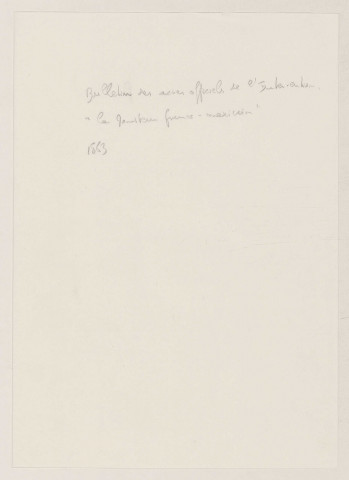 Bulletin des actes officiels de l'Intervention.
"la question franco-mexicaine"
1863